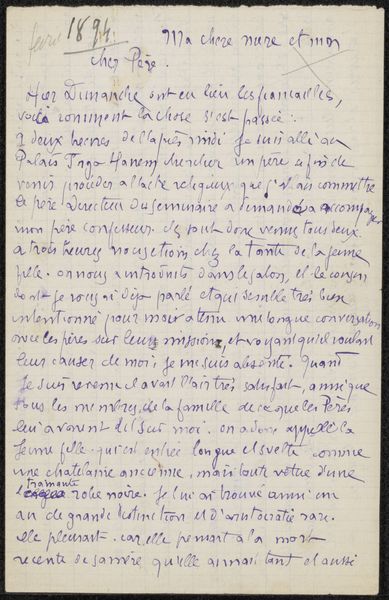 févr 1894.
Ma chère mère et mon
cher Père.
Hier Dimanche ont eu lieu les fiançailles,
voilà comment la chose s'est passée :
à deux heures de l'après midi je suis allé au
Palais Hanem chercher un père afin de
venir procéder à l'acte religieux que j'allais commettre
le père Directeur du Séminaire a demandé à accompagner
mon père confesseur. Ils sont donc venus tous deux.
a trois heures nous étions chez la tante de la jeune
fille. on nous a introduits dans le salon, et le cousin
dont je vous ai déjà parlé et qui semble très bien
intentionné pour moi a tenu une longue conversation
avec les pères sur leurs missions, et voyant qu'il voulait
leur causer de moi, je me suis absenté. Quand
je suis revenu il avait l'air très satisfait, ainsi que
tous les membres de la famille de ce que les Pères
leur avaient dit sur moi. on a donc appelé la
jeune fille. qui est entrée longue et svelte comme
une chatelaine ancienne, mais toute vêtue d'une
trainante
robe noire. Je lui ai trouvé ainsi un
air de grande distinction et d'aristocratie rare.
elle pleurait. car elle pensait à la mort
récente de sa mère qu'elle aimait tant et aussi